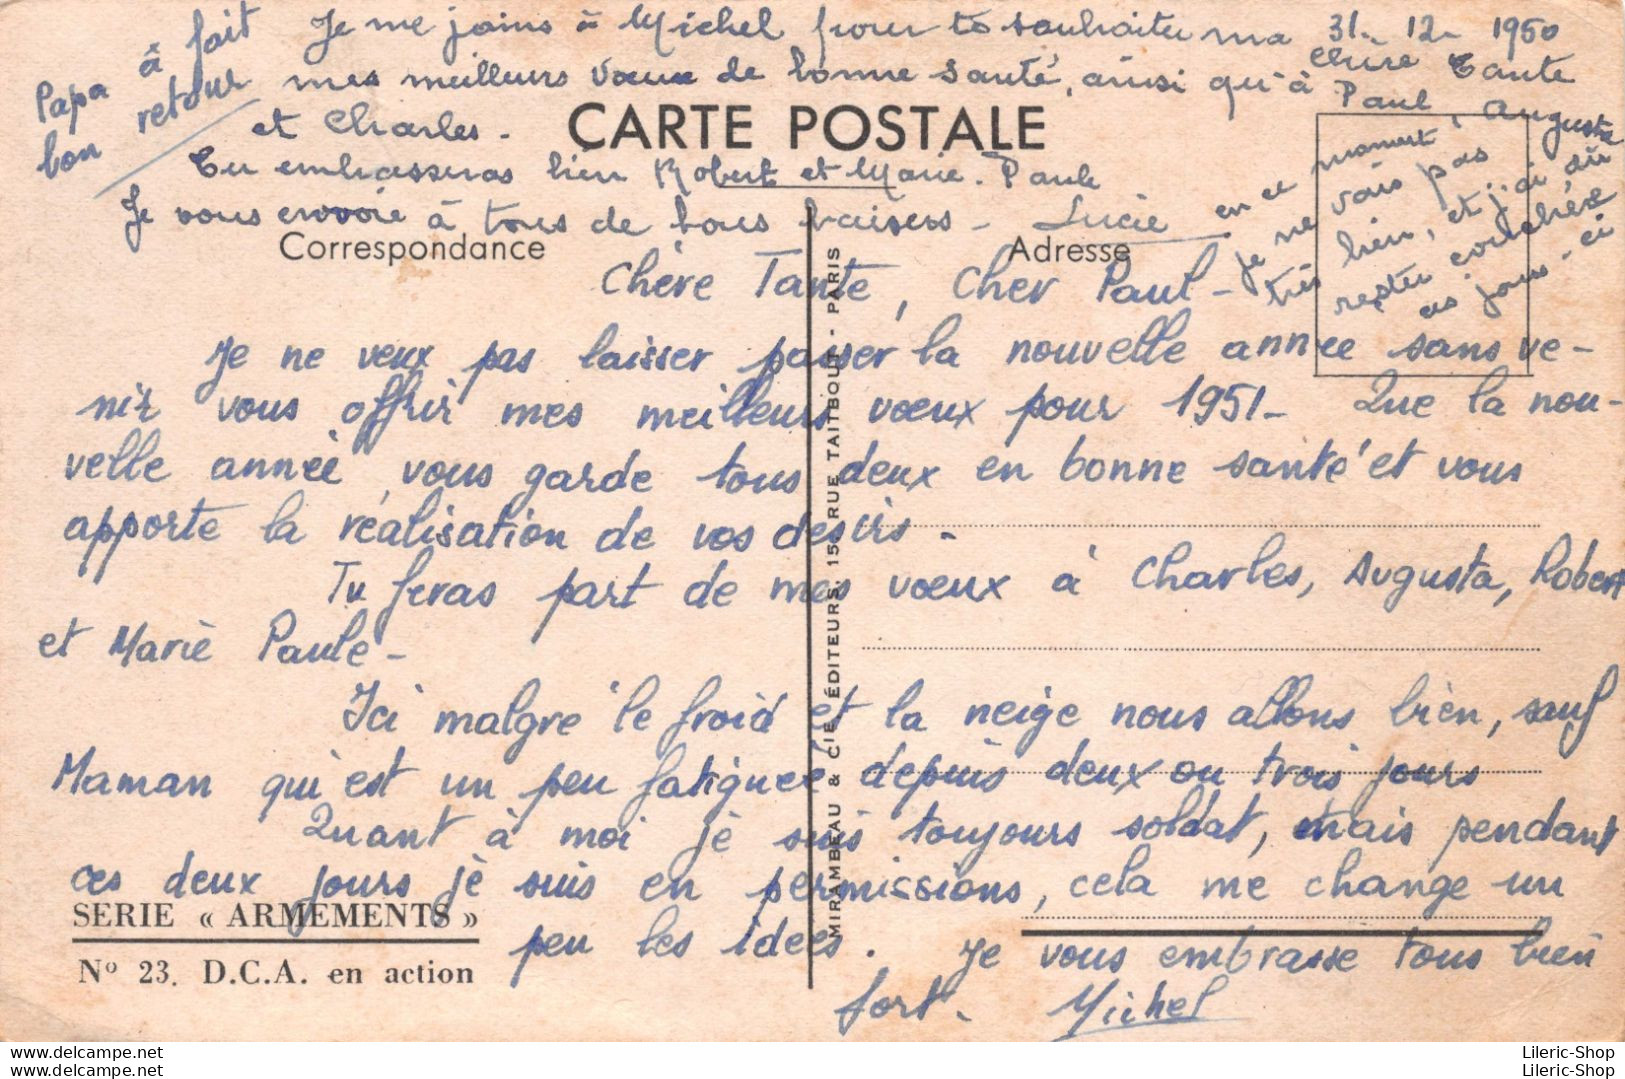 31-12-1950
Papa à fait
bon retour
Je me joins à Michel pour te souhaiter ma chère Tante
mes meilleurs vœux de bonne santé, ainsi qu'à Paul, Augusta
et Charles.
CARTE POSTALE
Tu embrasseras bien Robert et Marie-Paule
Je vous envoie à tous de bons baisers - Lucie
en ce moment,
je ne vais pas
très bien, et j'ai dû
rester couchée
ces jours-ci
Correspondance
Adresse
Chère Tante, Cher Paul -
Je ne veux pas laisser passer la nouvelle année sans ve-
nir vous offrir mes meilleurs vœux pour 1951- Que la nou-
velle année vous garde tous deux en bonne santé et vous
apporte la réalisation de vos desirs -
Tu feras part de mes vœux à Charles, Augusta, Robert
et Marie Paule -
Ici malgré le froid et la neige nous allons bien, sauf
Maman qui est un peu fatiguée depuis deux ou trois jours
Quant à moi je suis toujours soldat, mais pendant
ces deux jours je suis en permissions, cela me change un
peu les idées. Je vous embrasse tous bien
fort. Michel
SERIE « ARMEMENTS »
N° 23. D.C.A. en action
MIRAMBEAU & CIE, ÉDITEURS, 15, RUE TAITBOUT - PARIS
www.delcampe.net
www.delcampe.net
Lileric-Shop
Lileric-Shop